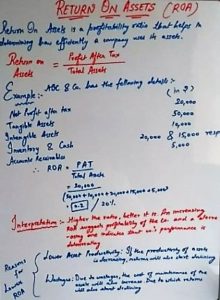 RETURN ON ASSETS (ROA)
Return On Assets is a profitability ratio that helps in
determining how efficiently a company uses its assets.
Return on Assets = Profit After Tax / Total Assets
Example:- ABC & Co. has the following details:-
(in ₹)
Net Profit after tax 20,000
Tangible Assets 50,000
Intangible Assets 10,000
Inventory & Cash 20,000 & 15,000 resp
Accounts Receivables 5,000
∴ ROA = PAT
Total Assets
= 20,000
50,000+10,000+20,000+15,000+5,000
= 0.2 / 20%
Interpretation:- Higher the ratio, better it is. An increasing
ROA suggests profitability of the Co. and a
one indicates that co.'s performance is
deteriorating
Reasons for Lower ROA
Lower Asset Productivity:- If the productivity of assets
decreasing, returns will also start declining
Wastages:- Due to wastages, the cost of maintenance of the
assets will also increase Due to which returns
will also start declining